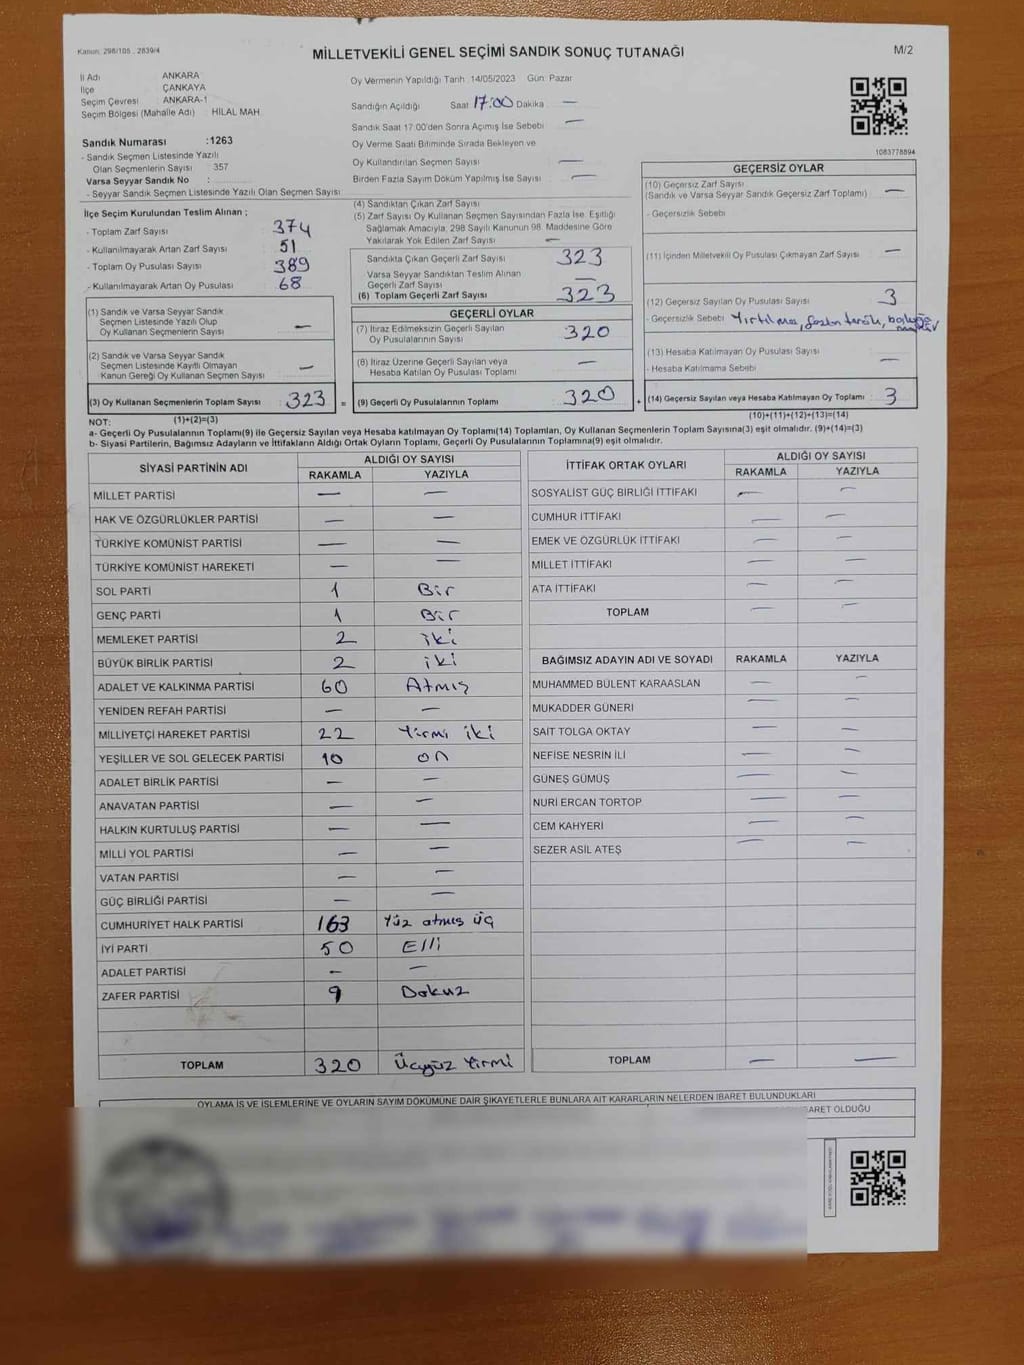 Kanun: 298/105 , 2839/4
MİLLETVEKİLİ GENEL SEÇİMİ SANDIK SONUÇ TUTANAĞI
M/2
İl Adı ANKARA
İlçe ÇANKAYA
Seçim Çevresi ANKARA-1
Seçim Bölgesi (Mahalle Adı) HİLAL MAH.
Sandık Numarası :1263
- Sandık Seçmen Listesinde Yazılı
Olan Seçmenlerin Sayısı 357
Varsa Seyyar Sandık No :
- Seyyar Sandık Seçmen Listesinde Yazılı Olan Seçmen Sayısı
Oy Vermenin Yapıldığı Tarih :14/05/2023 Gün: Pazar
Sandığın Açıldığı Saat 17:00 Dakika —
Sandık Saat 17:00'den Sonra Açımış İse Sebebi —
Oy Verme Saati Bitiminde Sırada Bekleyen ve
Oy Kullandırılan Seçmen Sayısı —
Birden Fazla Sayım Döküm Yapılmış İse Sayısı —
1083778894
İlçe Seçim Kurulundan Teslim Alınan ;
- Toplam Zarf Sayısı 374
- Kullanılmayarak Artan Zarf Sayısı 51
- Toplam Oy Pusulası Sayısı 389
- Kullanılmayarak Artan Oy Pusulası 68
(1) Sandık ve Varsa Seyyar Sandık
Seçmen Listesinde Yazılı Olup
Oy Kullanan Seçmenlerin Sayısı —
(2) Sandık ve Varsa Seyyar Sandık
Seçmen Listesinde Kayıtlı Olmayan
Kanun Gereği Oy Kullanan Seçmen Sayısı —
(3) Oy Kullanan Seçmenlerin Toplam Sayısı 323 =
(4) Sandıktan Çıkan Zarf Sayısı
(5) Zarf Sayısı Oy Kullanan Seçmen Sayısından Fazla İse, Eşitliği
Sağlamak Amacıyla, 298 Sayılı Kanunun 98. Maddesine Göre
Yakılarak Yok Edilen Zarf Sayısı —
Sandıkta Çıkan Geçerli Zarf Sayısı 323
Varsa Seyyar Sandıktan Teslim Alınan
Geçerli Zarf Sayısı —
(6) Toplam Geçerli Zarf Sayısı 323
GEÇERLİ OYLAR
(7) İtiraz Edilmeksizin Geçerli Sayılan
Oy Pusulalarının Sayısı 320
(8) İtiraz Üzerine Geçerli Sayılan veya
Hesaba Katılan Oy Pusulası Toplamı —
(9) Geçerli Oy Pusulalarının Toplamı 320 +
GEÇERSİZ OYLAR
(10) Geçersiz Zarf Sayısı
(Sandık ve Varsa Seyyar Sandık Geçersiz Zarf Toplamı) —
- Geçersizlik Sebebi
(11) İçinden Milletvekili Oy Pusulası Çıkmayan Zarf Sayısı —
(12) Geçersiz Sayılan Oy Pusulası Sayısı 3
- Geçersizlik Sebebi Yırtılma,
(13) Hesaba Katılmayan Oy Pusulası Sayısı —
- Hesaba Katılmama Sebebi
(14) Geçersiz Sayılan veya Hesaba Katılmayan Oy Toplamı 3
NOT: (1)+(2)=(3) (10)+(11)+(12)+(13)=(14)
a- Geçerli Oy Pusulalarının Toplamı(9) ile Geçersiz Sayılan veya Hesaba katılmayan Oy Toplamı(14) Toplamları, Oy Kullanan Seçmenlerin Toplam Sayısına(3) eşit olmalıdır. (9)+(14)=(3)
b- Siyasi Partilerin, Bağımsız Adayların ve İttifakların Aldığı Ortak Oyların Toplamı, Geçerli Oy Pusulalarının Toplamına(9) eşit olmalıdır.
SİYASİ PARTİNİN ADI ALDIĞI OY SAYISI
RAKAMLA YAZIYLA
MİLLET PARTİSİ — —
HAK VE ÖZGÜRLÜKLER PARTİSİ — —
TÜRKİYE KOMÜNİST PARTİSİ — —
TÜRKİYE KOMÜNİST HAREKETİ — —
SOL PARTİ 1 Bir
GENÇ PARTİ 1 Bir
MEMLEKET PARTİSİ 2 iki
BÜYÜK BİRLİK PARTİSİ 2 iki
ADALET VE KALKINMA PARTİSİ 60 Atmış
YENİDEN REFAH PARTİSİ — —
MİLLİYETÇİ HAREKET PARTİSİ 22 Yirmi iki
YEŞİLLER VE SOL GELECEK PARTİSİ 10 on
ADALET BİRLİK PARTİSİ — —
ANAVATAN PARTİSİ — —
HALKIN KURTULUŞ PARTİSİ — —
MİLLİ YOL PARTİSİ — —
VATAN PARTİSİ — —
GÜÇ BİRLİĞİ PARTİSİ — —
CUMHURİYET HALK PARTİSİ 163 Yüz atmış üç
İYİ PARTİ 50 Elli
ADALET PARTİSİ — —
ZAFER PARTİSİ 9 Dokuz
TOPLAM 320 Üçyüz Yirmi
İTTİFAK ORTAK OYLARI ALDIĞI OY SAYISI
RAKAMLA YAZIYLA
SOSYALİST GÜÇ BİRLİĞİ İTTİFAKI — —
CUMHUR İTTİFAKI — —
EMEK VE ÖZGÜRLÜK İTTİFAKI — —
MİLLET İTTİFAKI — —
ATA İTTİFAKI — —
TOPLAM — —
BAĞIMSIZ ADAYIN ADI VE SOYADI RAKAMLA YAZIYLA
MUHAMMED BÜLENT KARAASLAN — —
MUKADDER GÜNERİ — —
SAİT TOLGA OKTAY — —
NEFİSE NESRİN İLİ — —
GÜNEŞ GÜMÜŞ — —
NURİ ERCAN TORTOP — —
CEM KAHYERİ — —
SEZER ASİL ATEŞ — —
TOPLAM — —
OYLAMA İŞ VE İŞLEMLERİNE VE OYLARIN SAYIM DÖKÜMÜNE DAİR ŞİKAYETLERLE BUNLARA AİT KARARLARIN NELERDEN İBARET BULUNDUKLARI
BARET OLDUĞU